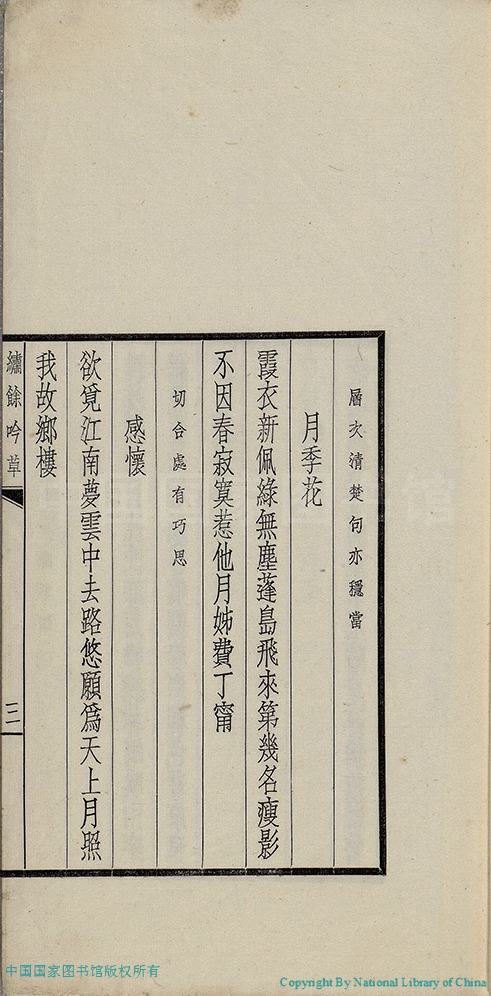 層次清楚句亦穩當
月季花
霞衣新佩綠無塵蓬島飛來第幾名瘦影
不因春寂寞惹他月姊費丁甯
切合處有巧思
感懷
欲覓江南夢雲中去路悠願爲天上月照
我故鄉樓
繡餘吟草
三
中国国家图书馆版权所有
Copyright By National Library of China